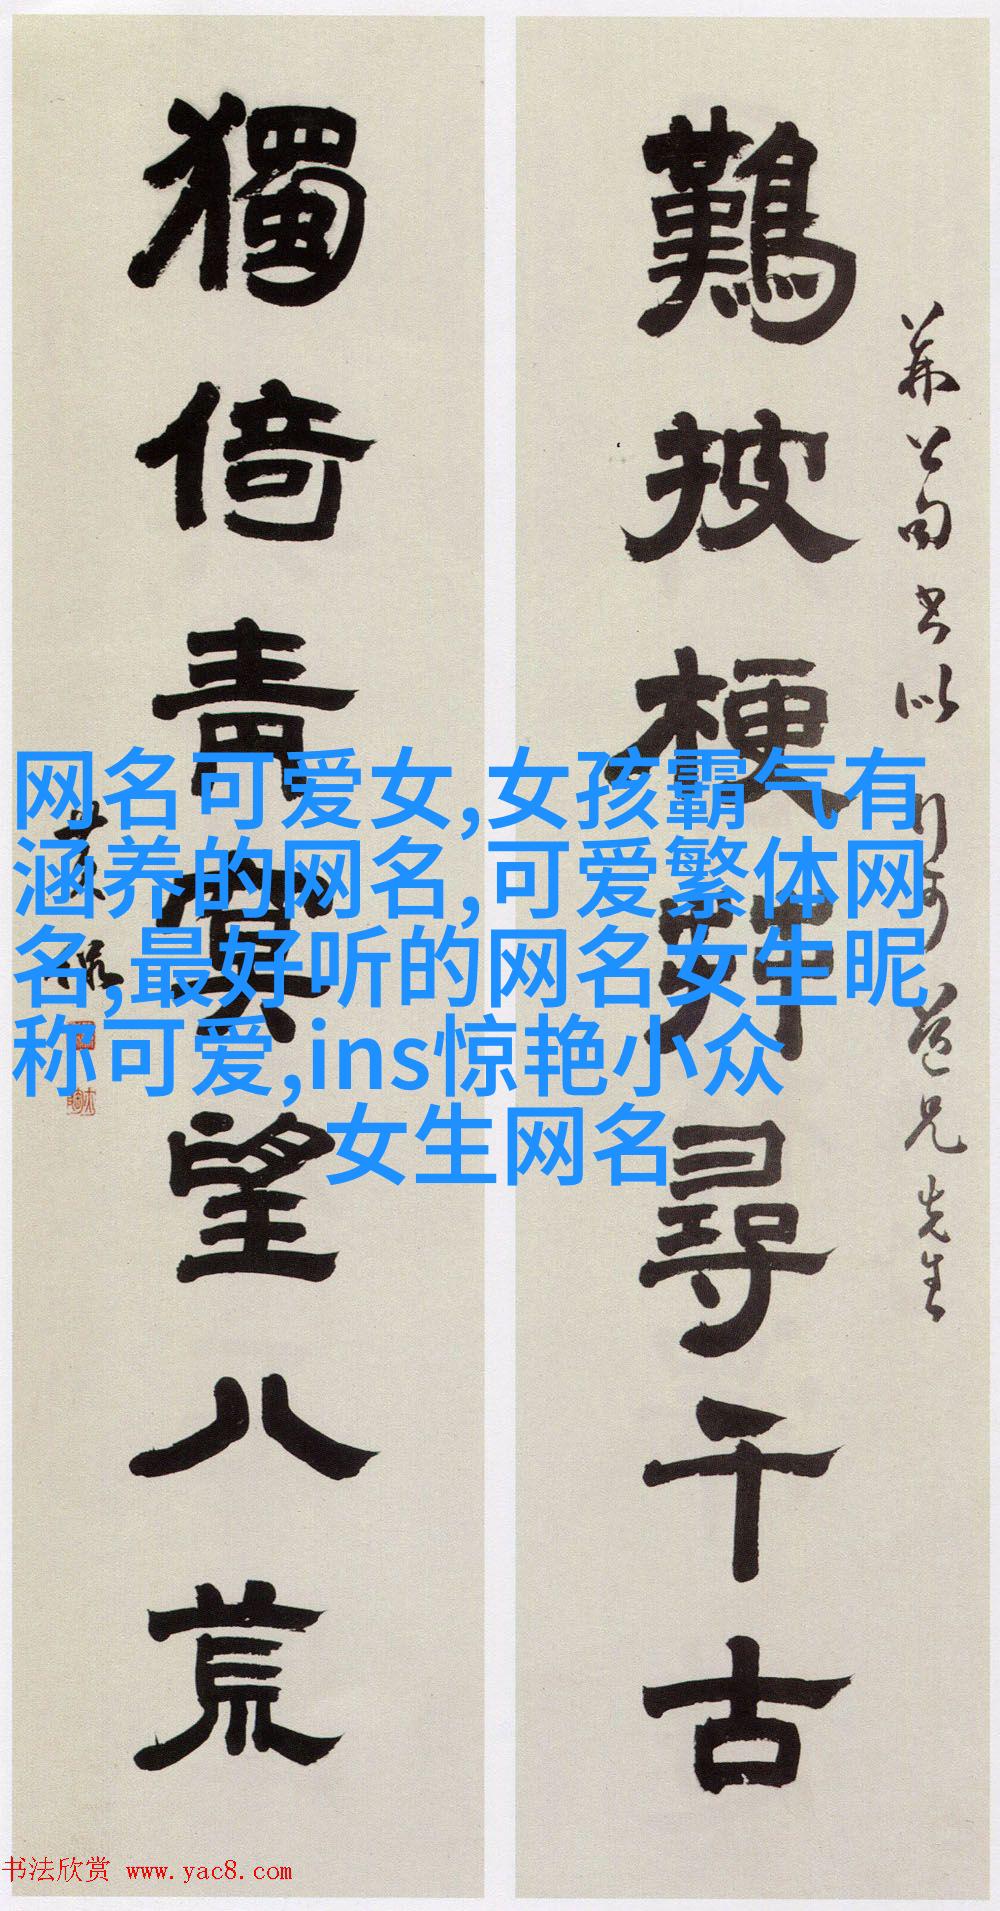 難披梗莽尋千古
獨倚青冥望八荒
网名可爱女,女孩霸气有
涵养的网名,可爱繁体网
名,最好听的网名女生昵
称可爱,ins惊艳小众
女生网名
书法欣赏 www.yac8.com